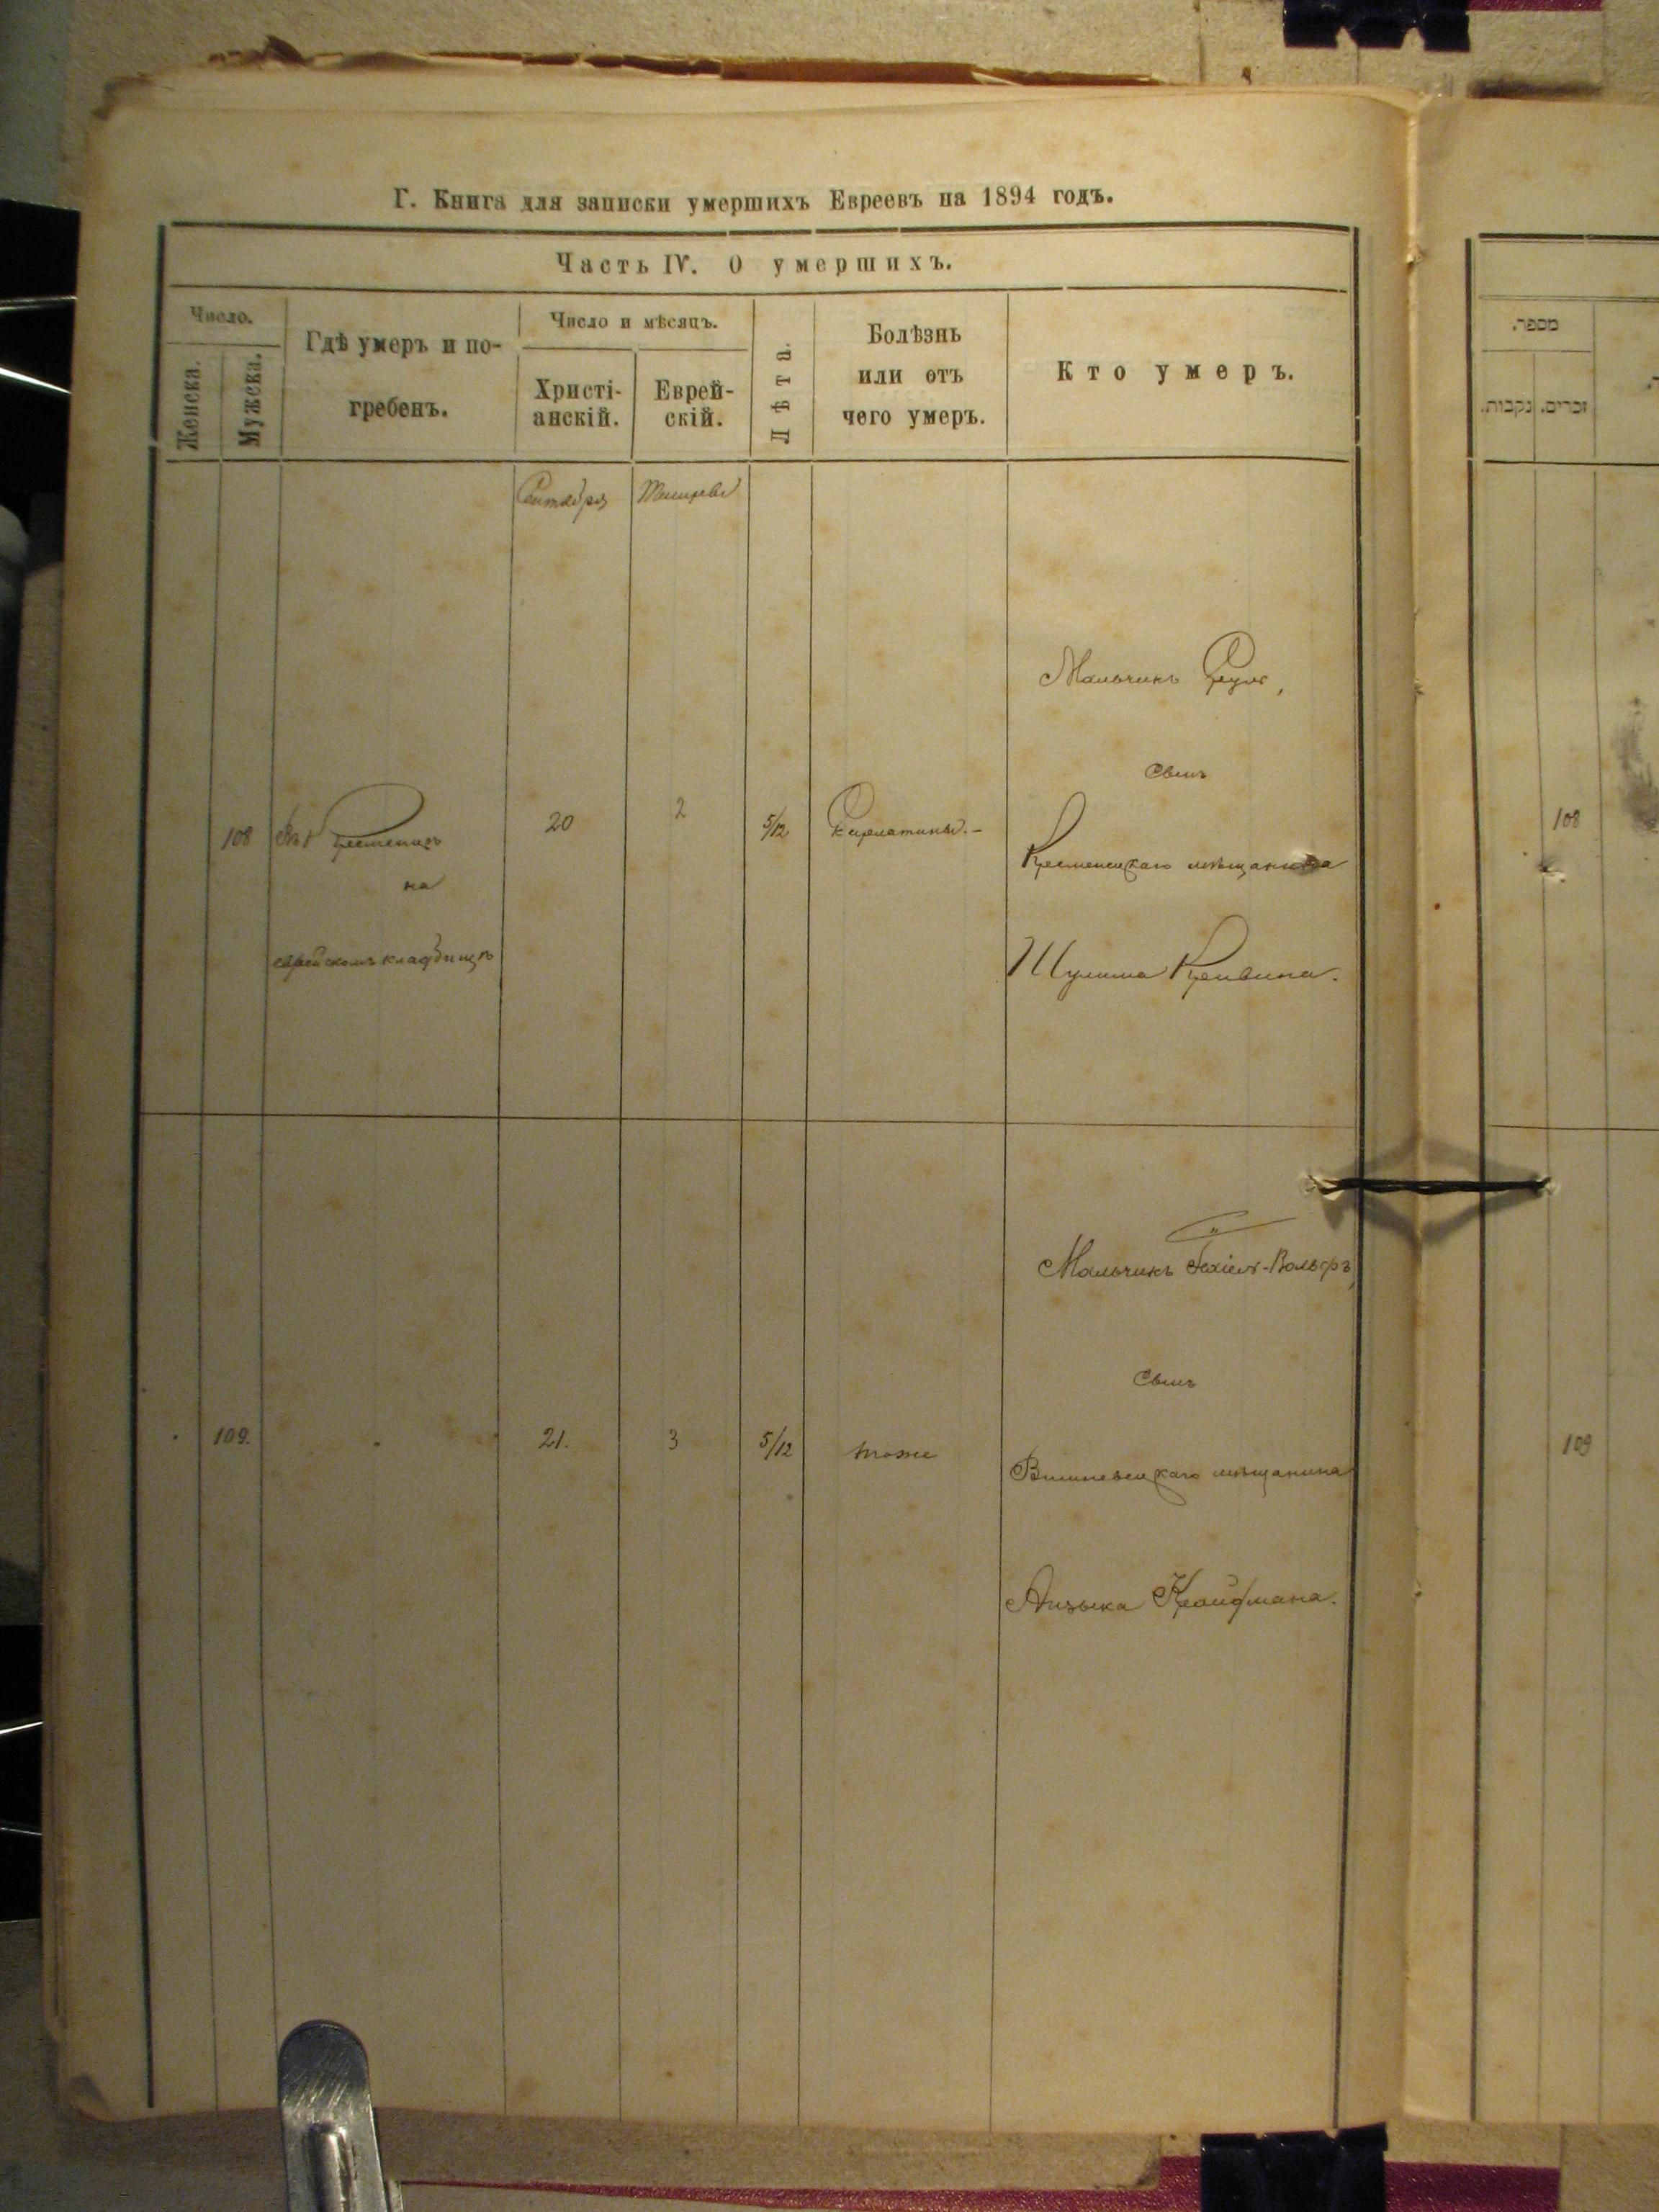 Г. Книга для записки умершихъ Евреевъ на 1894 годъ.
Часть IV. О умершихъ.
Число.
Женска.
Мужеска.
Гдѣ умеръ и по-
гребенъ.
Число и мѣсяцъ.
Христі-
анскій.
Еврей-
скій.
Лѣта.
Болѣзнь
или отъ
чего умеръ.
Кто умеръ.
מספר.
זכרים.
נקבות.
Сентября
Тишрей
108
Въ Кременцѣ
на
еврейскомъ кладбищѣ
20
2
5/12
Скарлатины.-
Мальчикъ
Сынъ
Кременецкаго мѣщанина
Шулима Кривина.
108
109.
21.
3
5/12
тоже
Мальчикъ Іехіель-Вольфъ,
Сынъ
Вишневецкаго мѣщанина
Айзыка
109